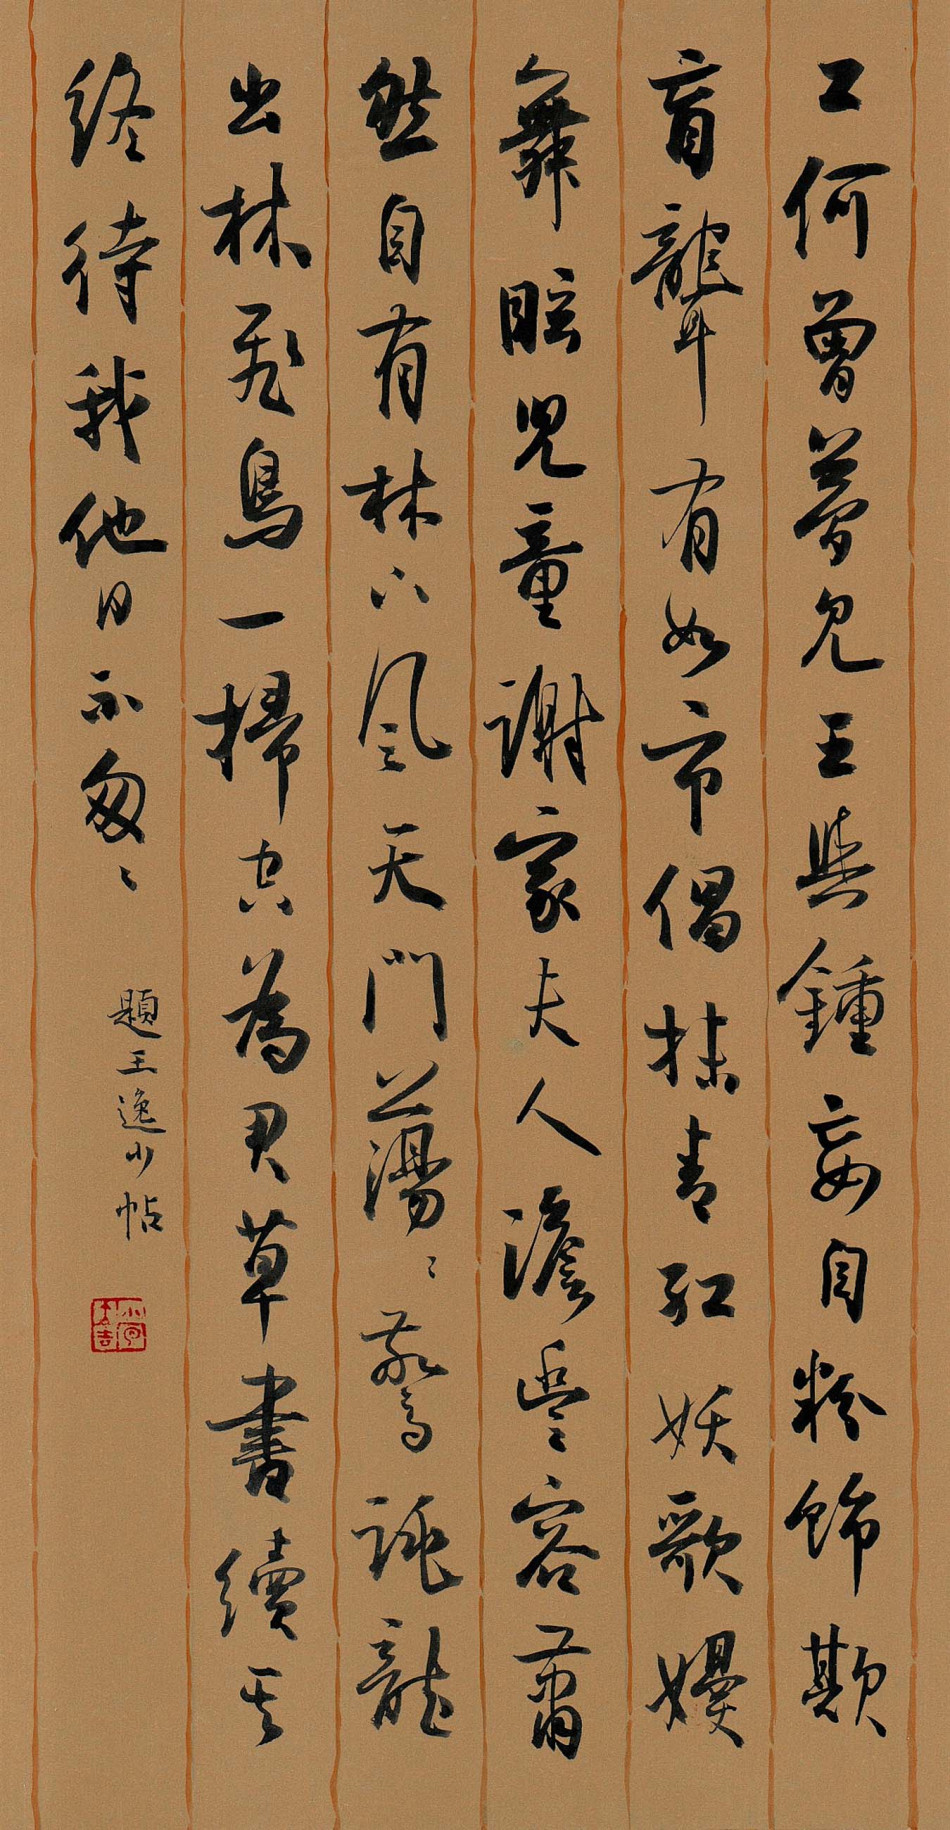 工何曾夢見王與鍾妄自粉飾欺
盲聾有如市倡抹青紅妖歌嫚
舞眩兒童謝家夫人澹豐容蕭
然自有林下風天門蕩〻驚跳龍
出林飛鳥一掃空為君草書續其
終待我他日不匆〻
題王逸少帖